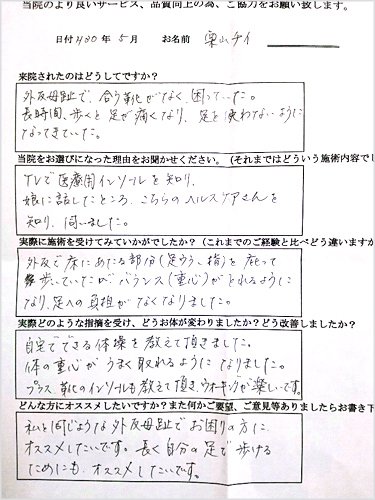 当院のより良いサービス、品質向上の為、ご協力をお願い致します。
日付 H30年5月 お名前 栗山チイ
来院されたのはどうしてですか?
外反母趾で、合う靴がなく困っていた。
長時間、歩くと足が痛くなり、足を使わないように
なってきていた。
当院をお選びになった理由をお聞かせください。(それまではどういう施術内容でし
TVで医療用インソールを知り、
娘に話したところ、こちらのヘルスケアさんを
知り、伺いました。
実際に施術を受けてみていかがでしたか?(これまでのご経験と比べどう違いますか
外反で床にあたる部分(足うら、指)を庇って
歩いていたがバランス(重心)がとれるように
なり、足への負担がなくなりました。
実際どのような指摘を受け、どうお体が変わりましたか?どう改善しましたか?
自宅でできる体操を教えて頂きました。
体の重心がうまく取れるようになりました。
プラス靴のインソールも教えて頂き、ウオーキングが楽しいです。
どんな方にオススメしたいですか?また何かご要望、ご意見等ありましたらお書き下
私と同じような外反母趾でお困りの方に
オススメしたいです。長く自分の足で歩ける
ためにも、オススメしたいです。